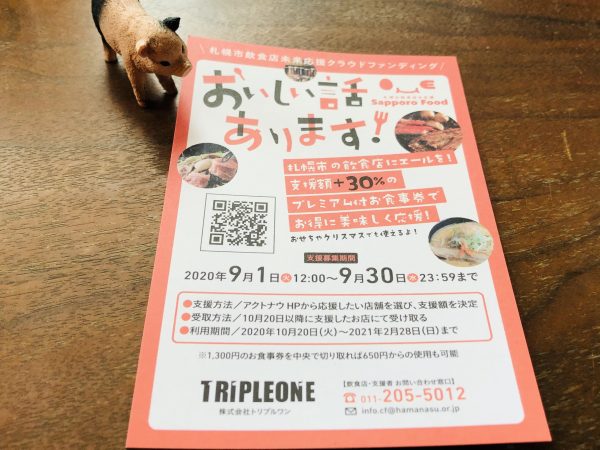 \札幌市飲食店未来応援クラウドファンディング/
おいしい話
あります!
Sapporo Food
札幌市の飲食店にエールを!
支援額+30%の
プレミアム付お食事券で
お得に美味しく応援!
おせちやクリスマスでも使えるよ!
支援募集期間
2020年9月1日㊋12:00〜9月30日㊌23:59まで
●支援方法/アクトナウHPから応援したい店舗を選び、支援額を決定
●受取方法/10月20日以降に支援したお店にて受け取る
●利用期間/2020年10月20日(火)〜2021年2月28日(日)まで
※1,300円のお食事券を中央で切り取れば650円からの使用も可能
TRiPLEONE
株式会社トリプルワン
【飲食店・支援者 お問い合わせ窓口】
011-205-5012
info.cf@hamanasu.or.jp